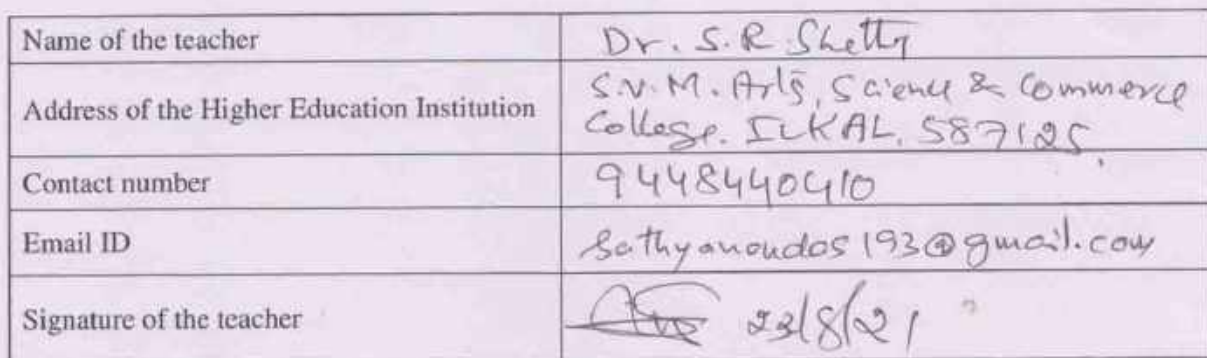 Name of the teacher Dr. S.R Shetty
Address of the Higher Education Institution S.V.M. Arts, Science & Commerce
College. ILKAL. 587125
Contact number 9448440410
Email ID sathyanandas193@gmail.com
Signature of the teacher 23/8/21